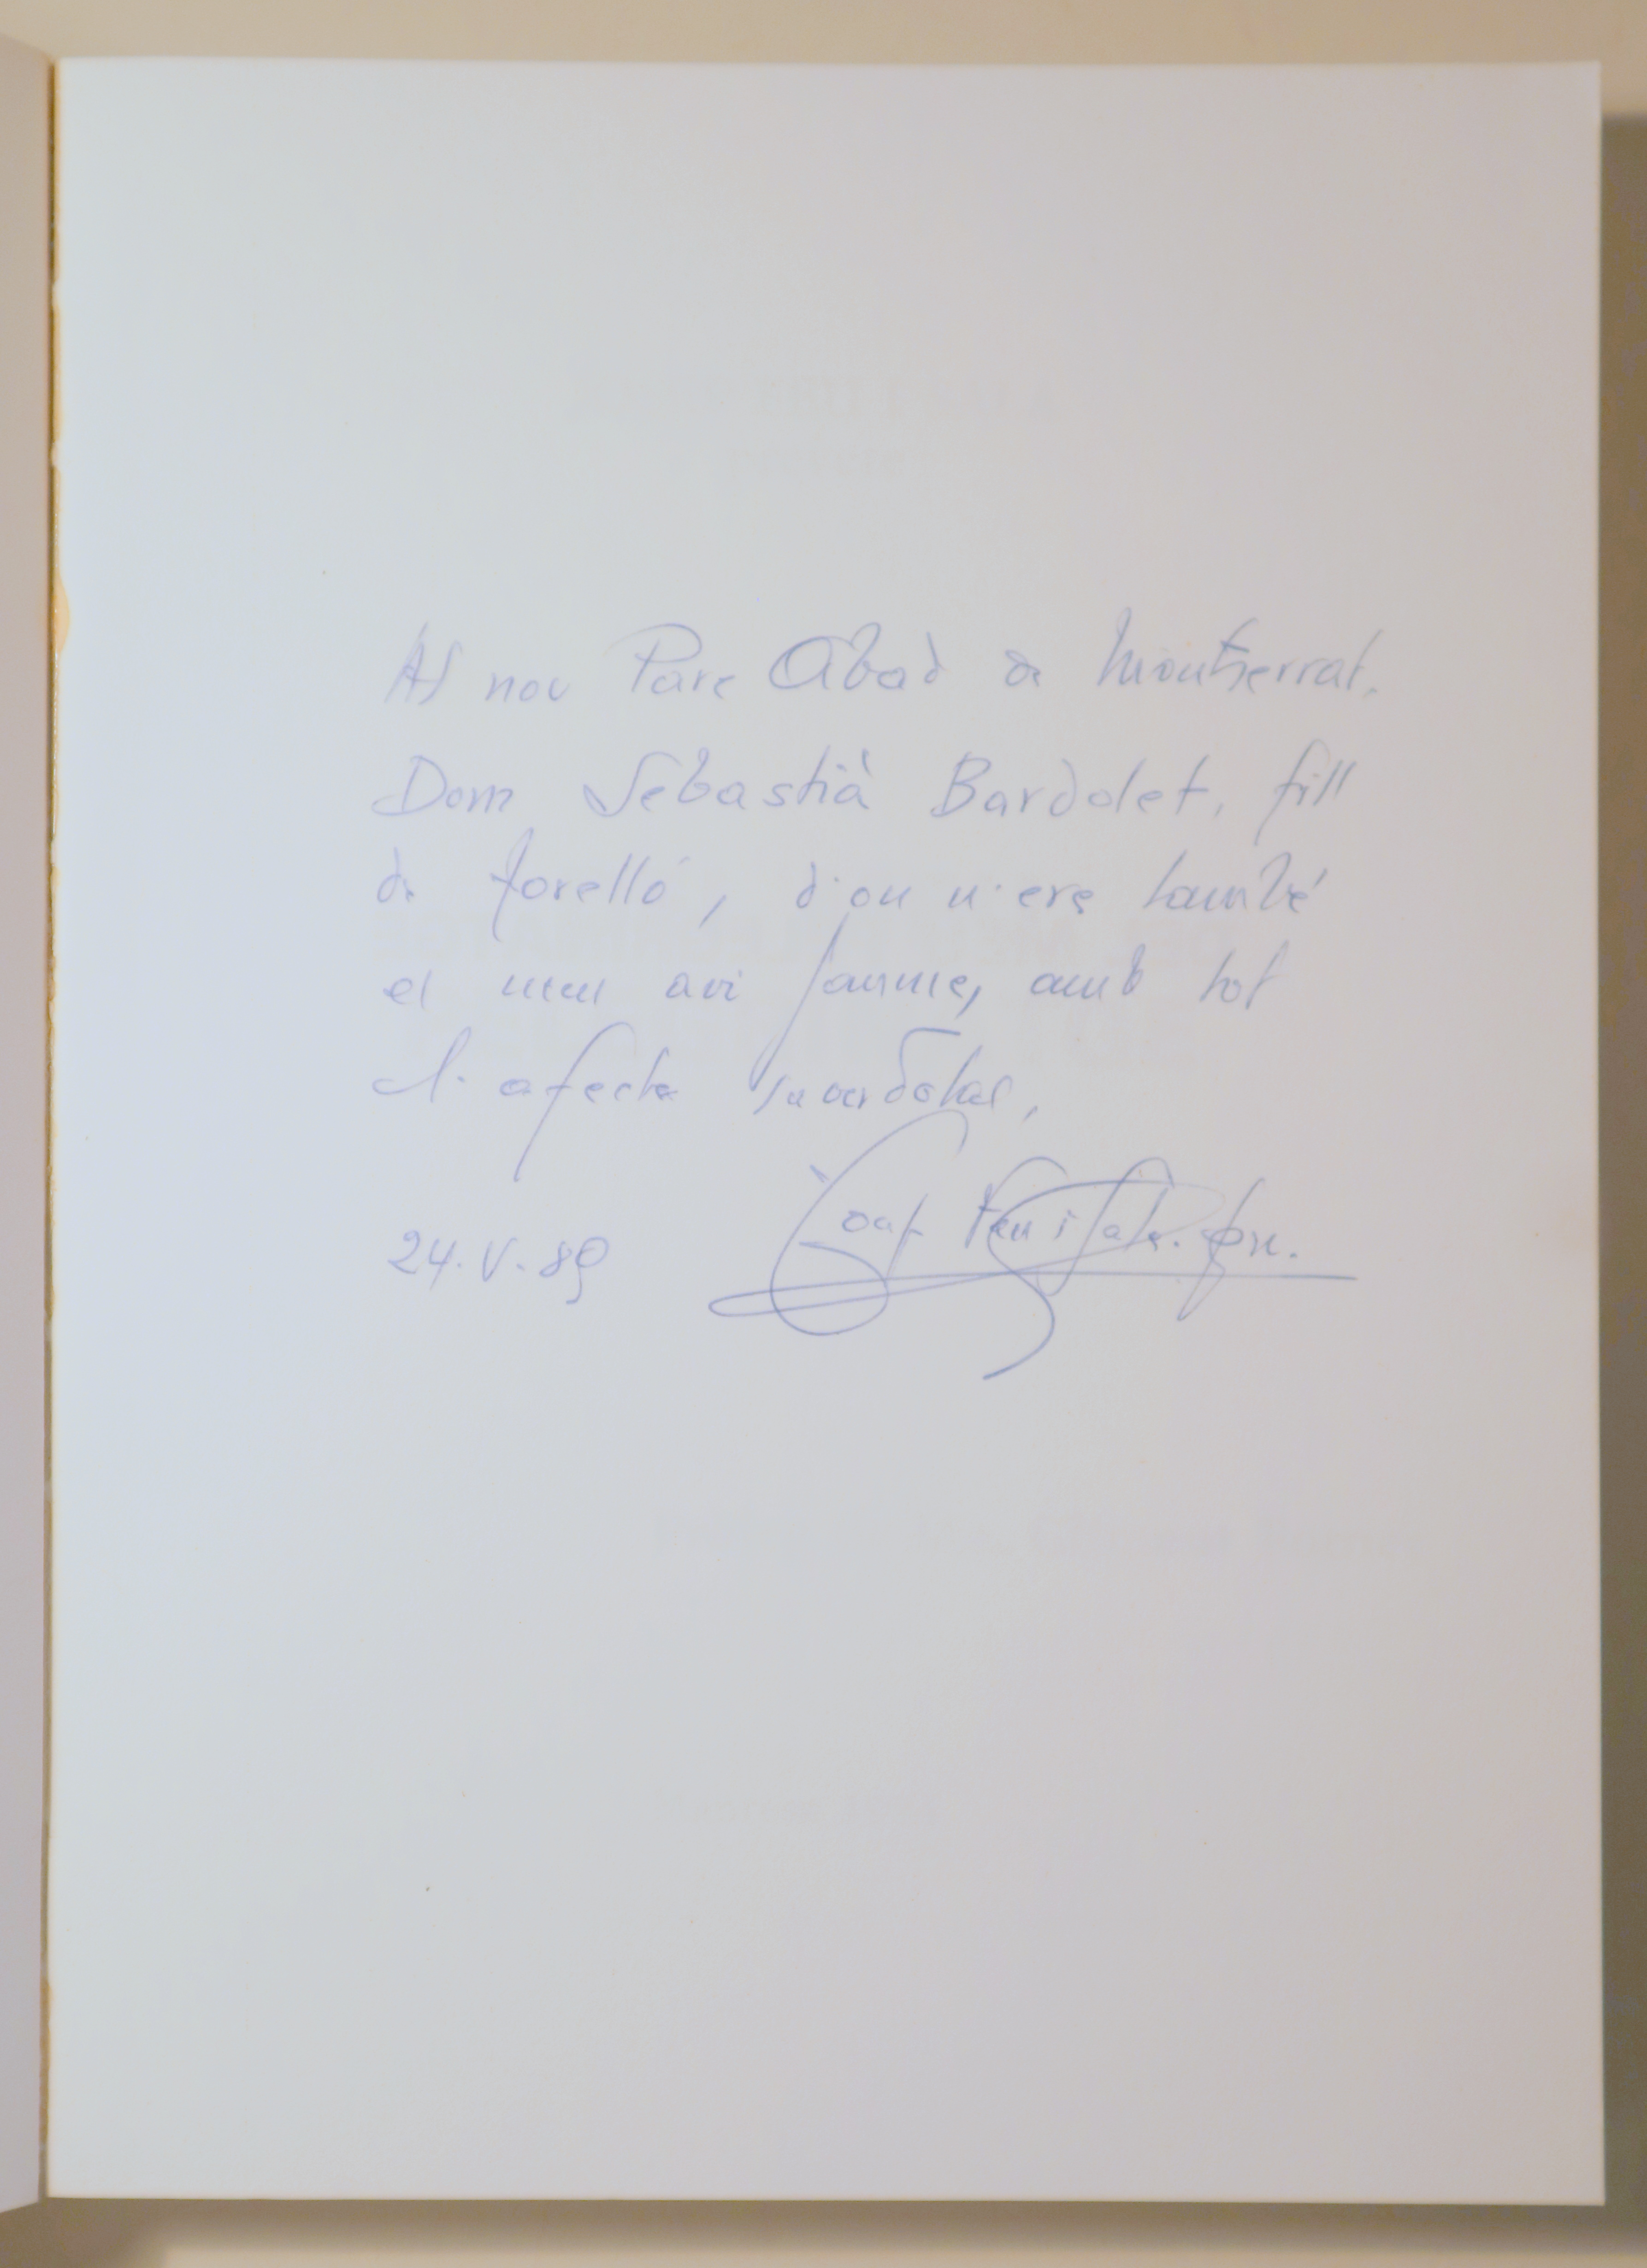 Al nou Pare Abad de Montserrat.
Dom Sebastià Bardolet, fill
de Torelló, d'on n'era també
el meu avi Jaume, amb tot
l'afecte sacerdotal,
24.V.89